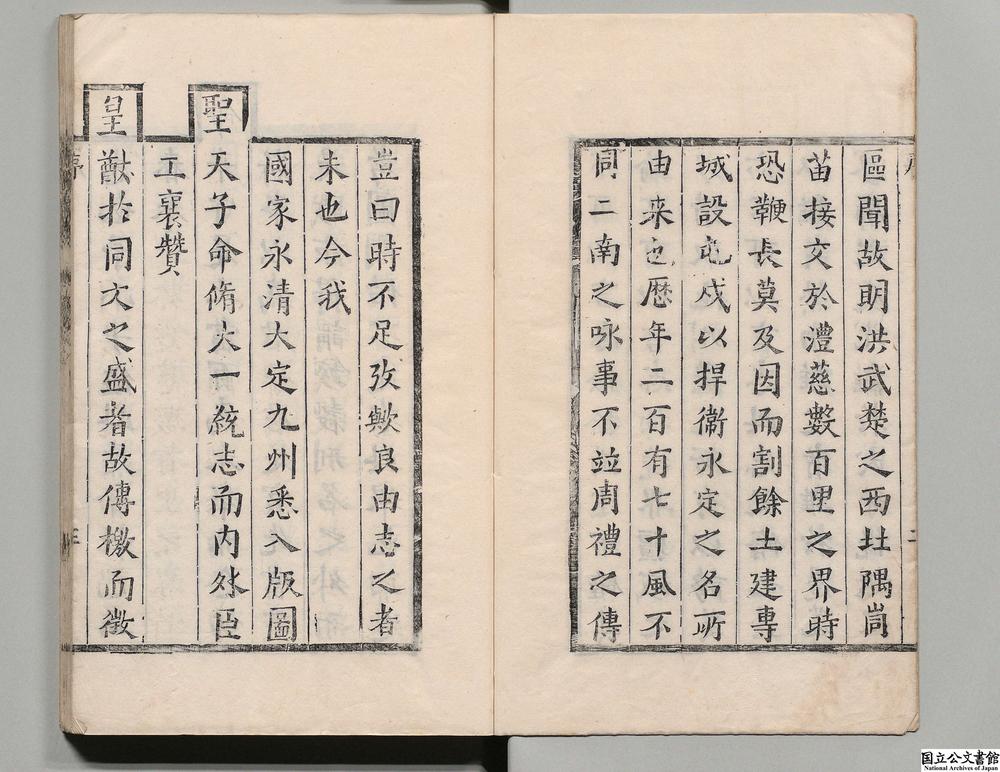 區聞故明洪武楚之西壯隅峝
苗接交於澧慈數百里之界時
恐鞭長莫及因而割餘土建專
城設屯戍以捍衞永定之名所
由来也歷年二百有七十風不
同二南之咏事不並周禮之傳
豈曰時不足攷歟良由志之者
未也今我
國家永清大定九州悉入版圖
聖天子命脩大一統志而内外臣
工襄贊
皇猷扵同文之盛者故傳檄而徵
序
三
国立公文書館
National Archives of Japan